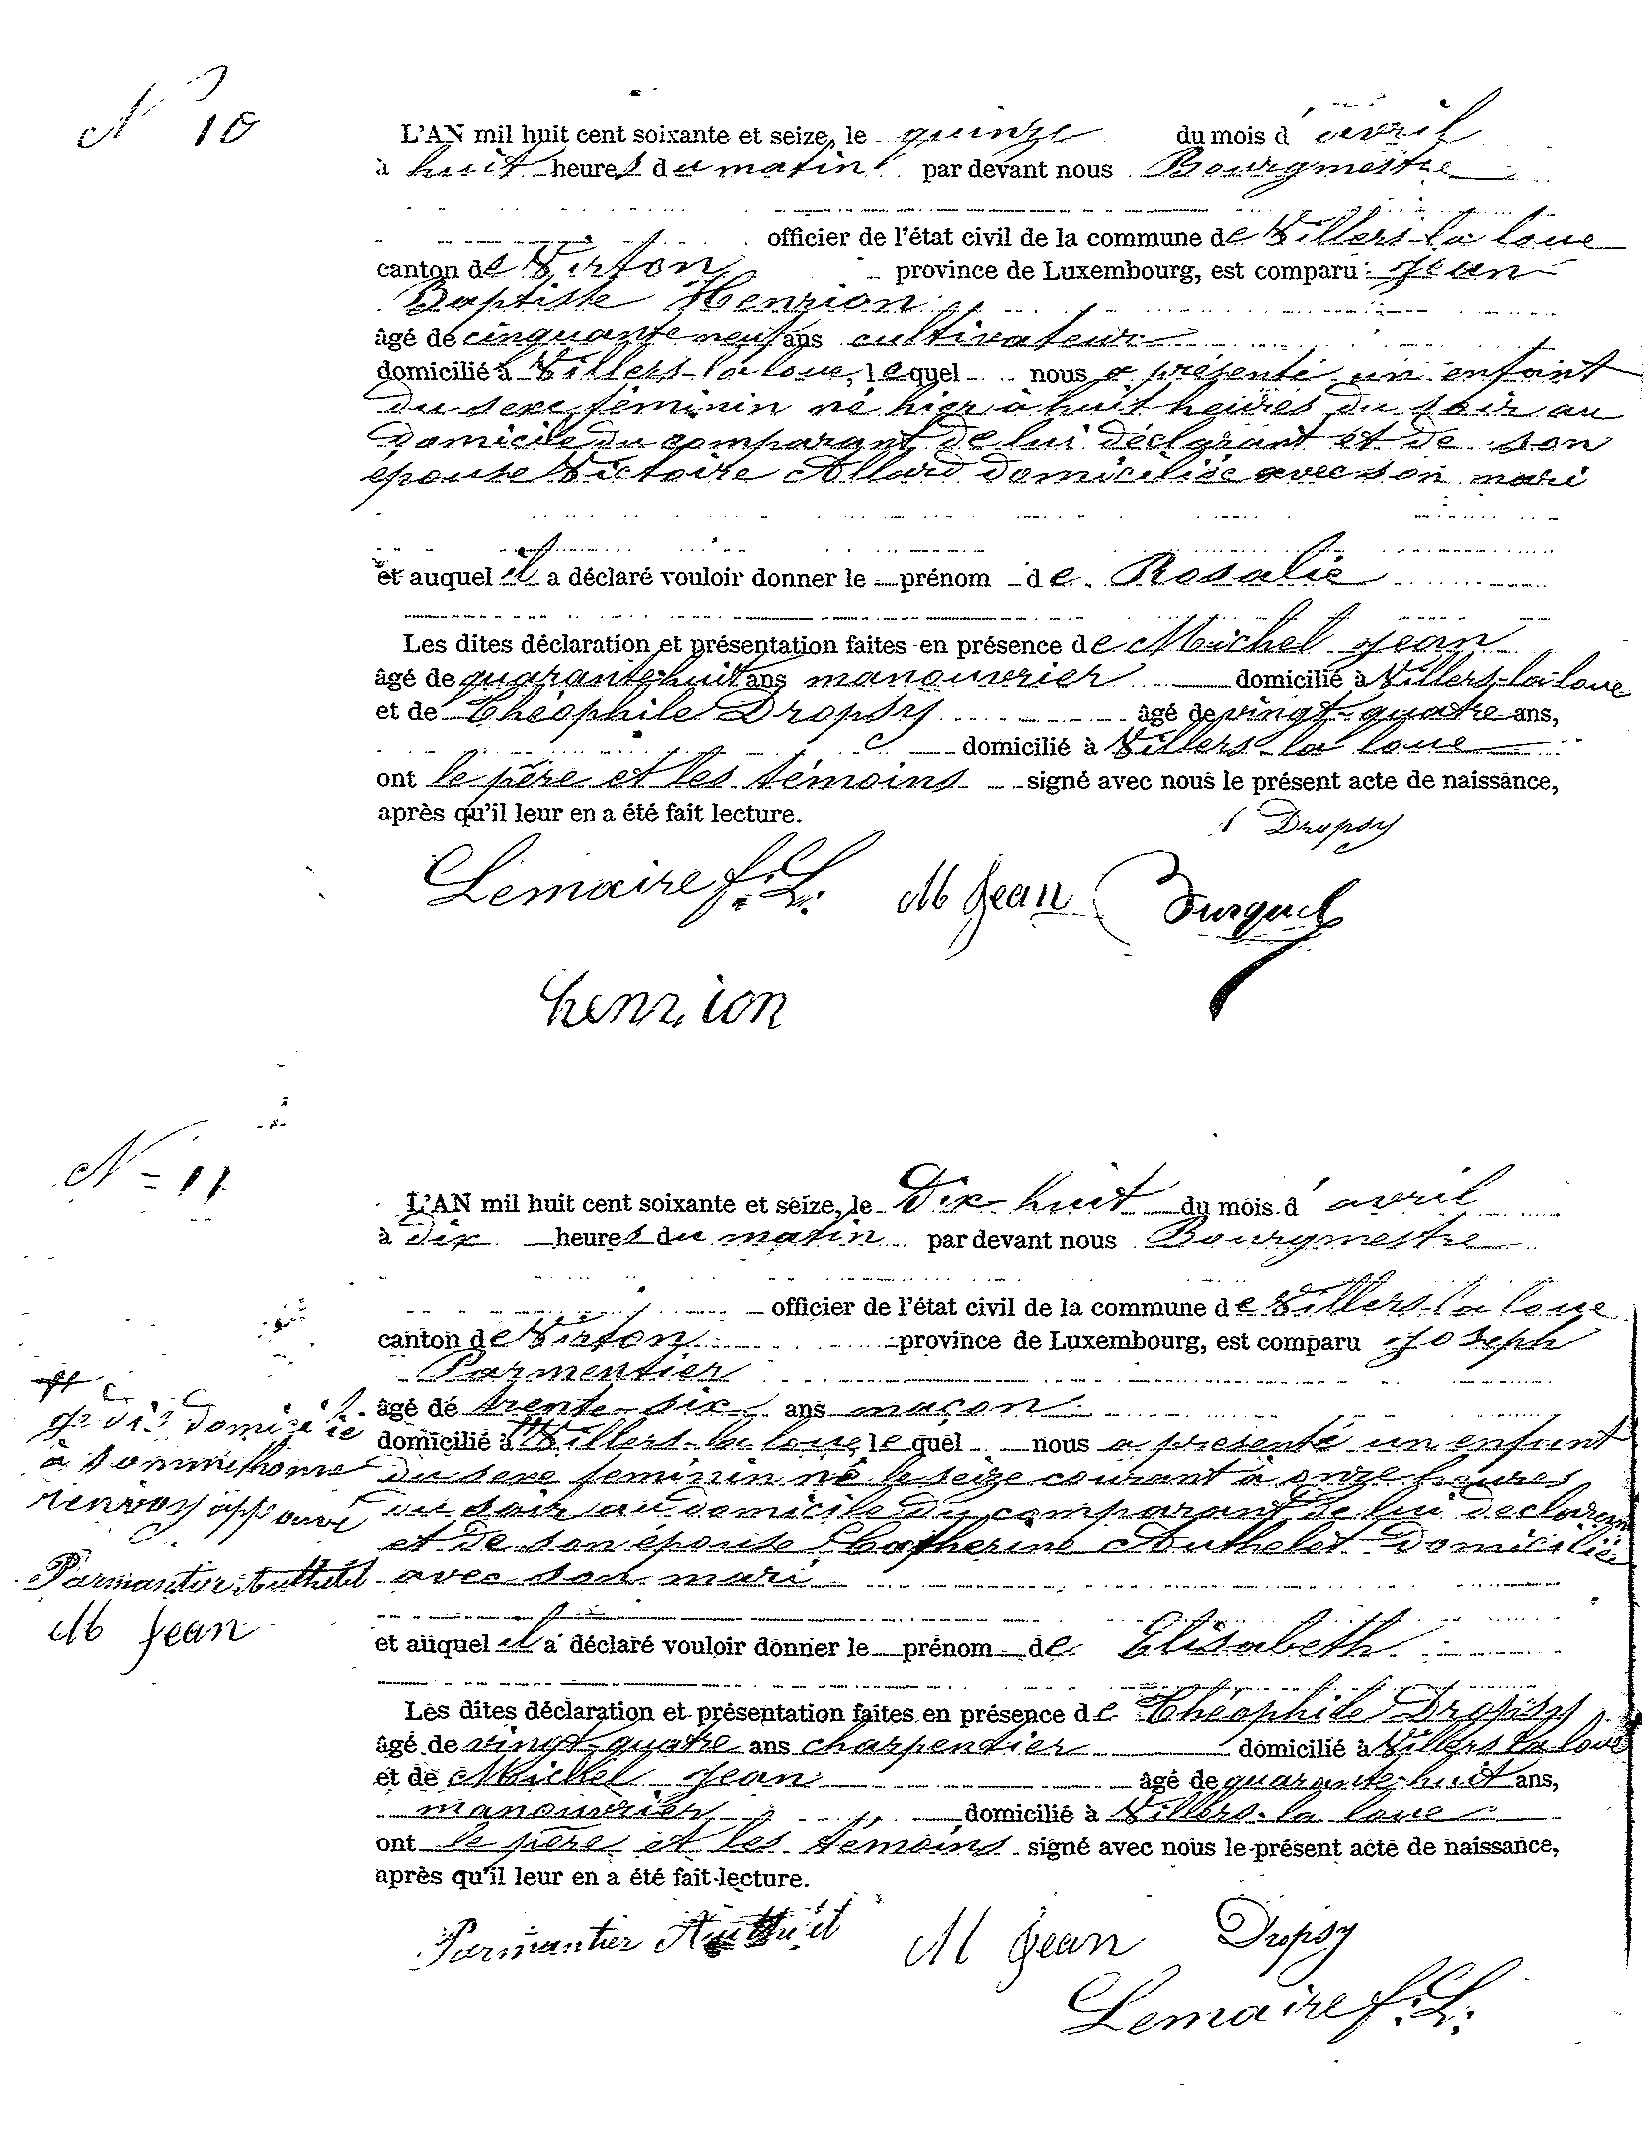 N° 10
L'AN mil huit cent soixante et seize, le quinze du mois d'avril
à huit heures du matin par devant nous Bourgmestre
officier de l'état civil de la commune de Villers-la-loue
canton de Virton province de Luxembourg, est comparu Jean
Baptiste Henrion
âgé de cinquante neuf ans cultivateur
domicilié à Villers-la loue, lequel nous a présenté un enfant
du sexe féminin né hier à huit heures du soir au
domicile du comparant de lui déclarant et de son
epouse Victoire Allard domiciliée avec son mari
et auquel il a déclaré vouloir donner le prénom de Rosalie
Les dites déclaration et présentation faites en présence de Michel Jean
âgé de quarante-huit ans manouvrier domicilié à Villers-la-loue
et de Théophile Dropsy âgé de vingt-quatre ans,
domicilié à Villers-la loue
ont le père et les témoins signé avec nous le présent acte de naissance,
après qu'il leur en a été fait lecture.
Dropsy
Lemaire f.L. M Jean
henrion
N = 11
L'AN mil huit cent soixante et seize, le Dix-huit du mois d'avril
à dix heures du matin par devant nous Bourgmestre
officier de l'état civil de la commune de Villers-la loue
canton de Virton province de Luxembourg, est comparu Joseph
Parmentier
âgé de trente-six ans maçon
domicilié à Villers-la loue, lequel nous a présenté un enfant
du sexe feminin né le seize courant à onze heures
du soir au domicile du comparant de lui declarant
et de son épouse Catherine Authelet domiciliée
avec son mari
domicilié
à Sommethonne
renvoy approuvé
Parmantier Authelet
M Jean
et auquel il a déclaré vouloir donner le prénom de Elisabeth
Les dites déclaration et présentation faites en présence de Théophile Dropsy
âgé de vingt-quatre ans charpentier domicilié à Villers la loue
et de Michel Jean âgé de quarante-huit ans,
manouvrier domicilié à Villers-la loue
ont le père et les témoins signé avec nous le présent acte de naissance,
après qu'il leur en a été fait lecture.
Parmantier Authelet M Jean Dropsy
Lemaire f.L.